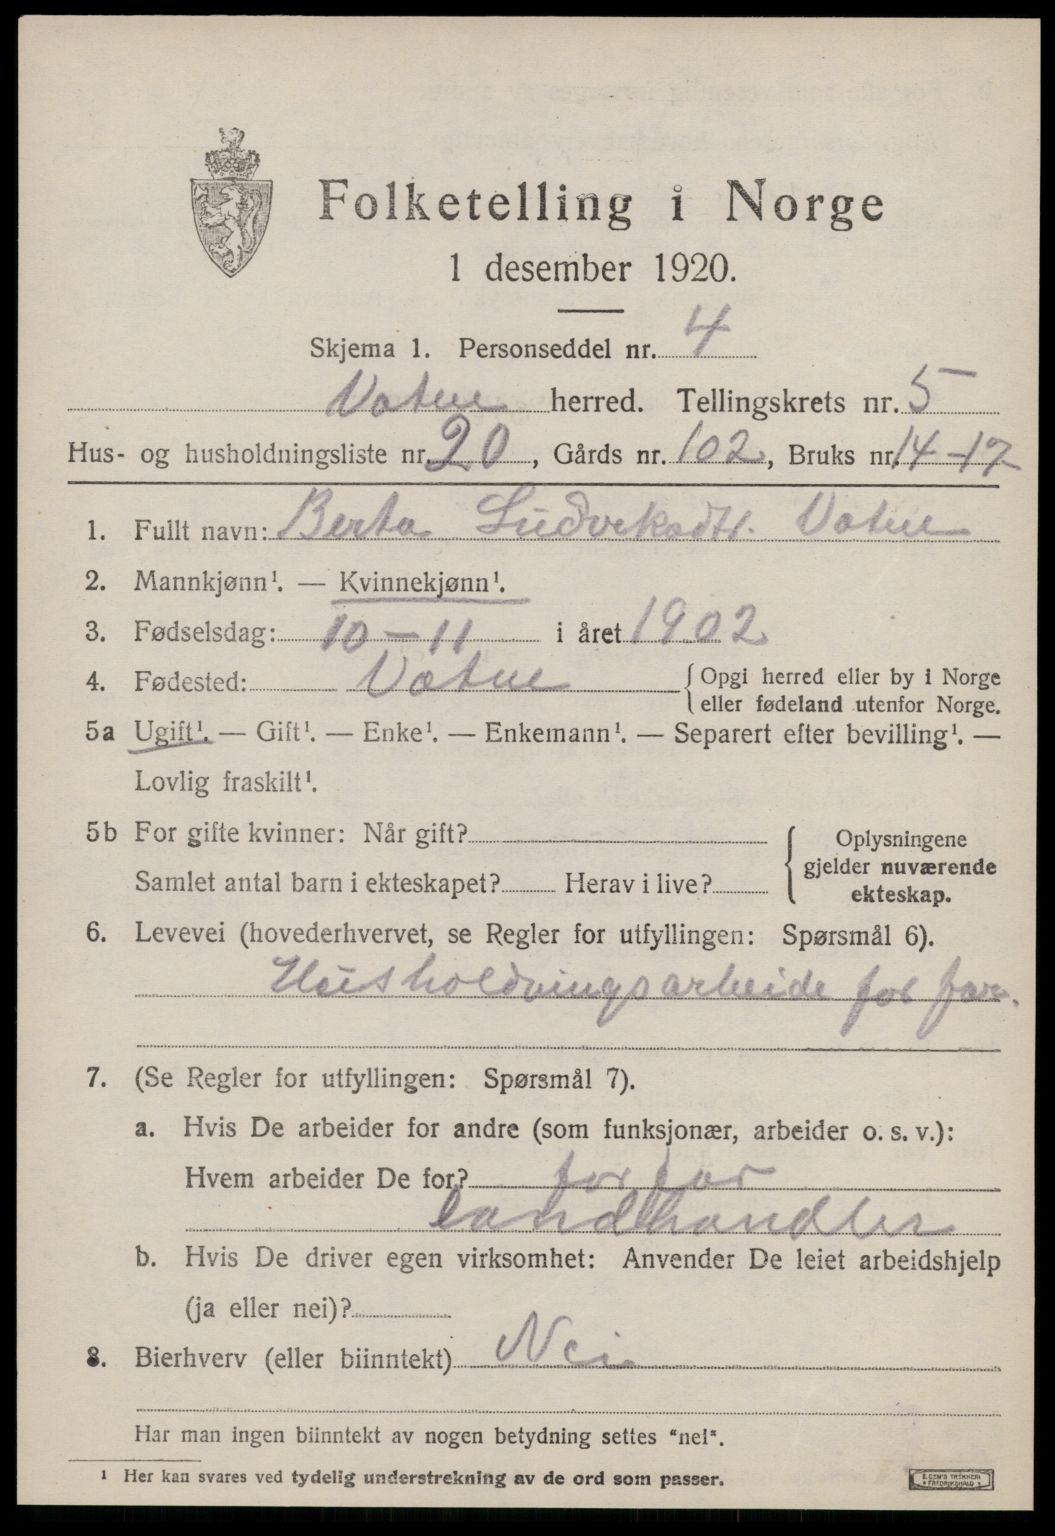 Folketelling i Norge
1 desember 1920.
Skjema 1. Personseddel nr. 4
Vatne herred. Tellingskrets nr. 5
Hus- og husholdningsliste nr. 20, Gårds nr. 102, Bruks nr. 14-17
1. Fullt navn: Berta Ludvksdtr. Vatne
2. Mannkjønn¹. — Kvinnekjønn¹.
3. Fødselsdag: 10-11 i året 1902
4. Fødested: Vatne { Opgi herred eller by i Norge
eller fødeland utenfor Norge.
5a Ugift¹. — Gift¹. — Enke¹. — Enkemann¹. — Separert efter bevilling¹. —
Lovlig fraskilt¹.
5b For gifte kvinner: Når gift?
Samlet antal barn i ekteskapet? Herav i live?
Oplysningene
gjelder nuværende
ekteskap.
6. Levevei (hovederhvervet, se Regler for utfyllingen: Spørsmål 6).
Husholdningsarbeide for far.
7. (Se Regler for utfyllingen: Spørsmål 7).
a. Hvis De arbeider for andre (som funksjonær, arbeider o. s. v.):
Hvem arbeider De for? for far
landhandler
b. Hvis De driver egen virksomhet: Anvender De leiet arbeidshjelp
(ja eller nei)?
8. Bierhverv (eller biinntekt) Nei
Har man ingen biinntekt av nogen betydning settes "nei".
¹ Her kan svares ved tydelig understrekning av de ord som passer.